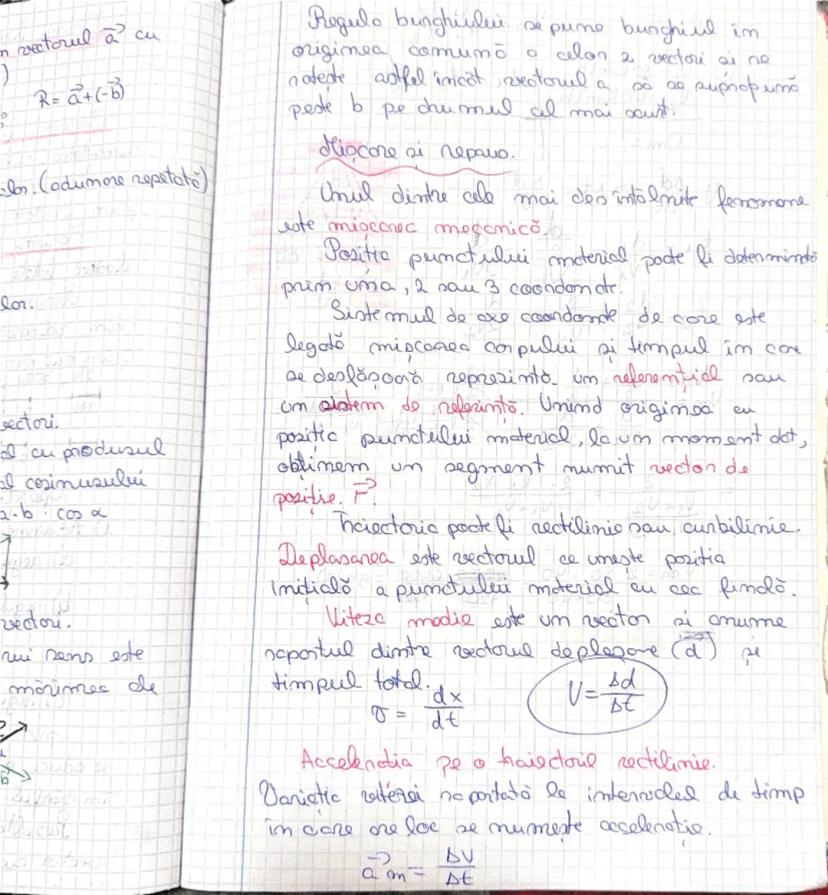 n vectorul a⃗ cu
)
R = a⃗+(-b⃗)
lor. (adunare repetată)
lor.
vectori.
l cu produsul
l cosinusului
a·b·cos α
vectori.
rui sens este
mărimea de
b⃗
Regula burghiului: se pune burghiul în
originea comună a celor 2 vectori și se
rotește astfel încât vectorul a să se suprapună
peste b pe drumul cel mai scurt.
Mișcare și repaus.
Unul dintre cele mai des întâlnite fenomene
este mișcarea mecanică.
Poziția punctului material poate fi determinată
prin una, 2 sau 3 coordonate.
Sistemul de axe coordonate de care este
legată mișcarea corpului și timpul în care
se desfășoară reprezintă un referențial sau
un sistem de referință. Unind originea cu
poziția punctului material, la un moment dat,
obținem un segment numit vector de
poziție. r⃗
Traiectoria poate fi rectilinie sau curbilinie.
Deplasarea este vectorul ce unește poziția
inițială a punctului material cu cea finală.
Viteza medie este un vector și anume
raportul dintre vectorul deplasare (d⃗) și
timpul total.
v = dx/dt
V = Δd/Δt
Accelerația pe o traiectorie rectilinie.
Variația vitezei raportată la intervalul de timp
în care are loc se numește accelerație.
a⃗m = ΔV/Δt